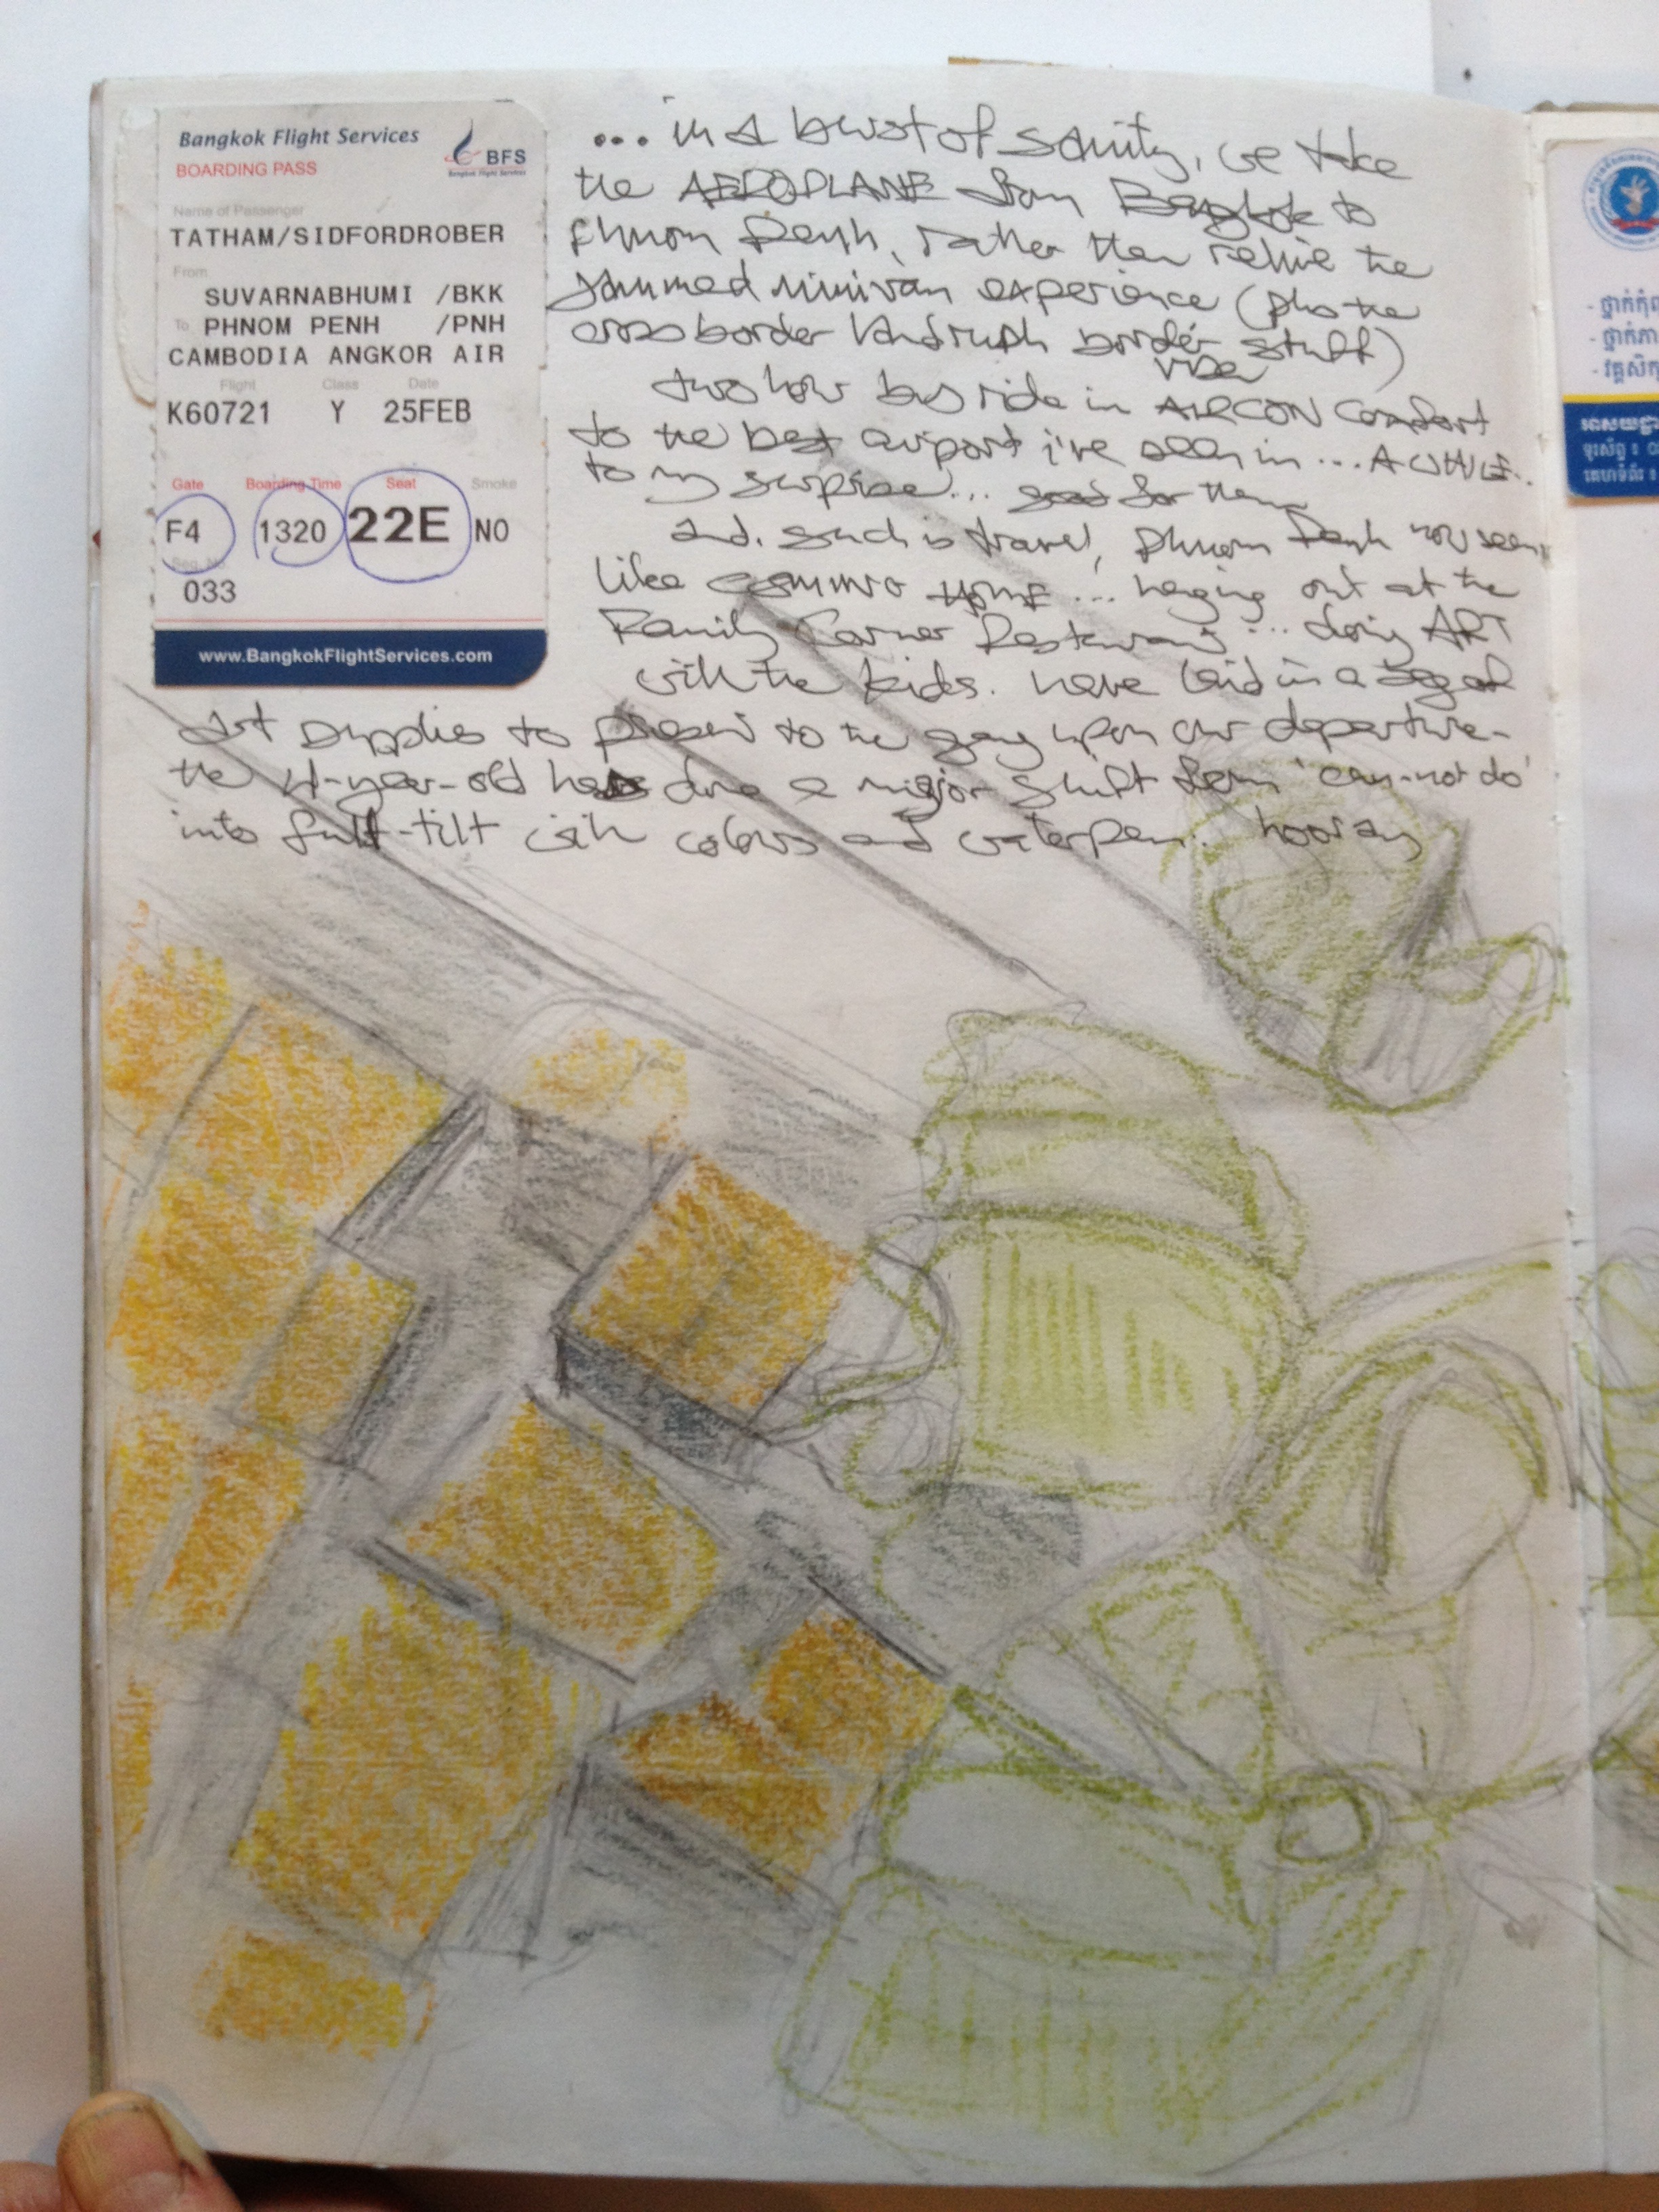 Bangkok Flight Services
BFS
Bangkok Flight Services
BOARDING PASS
Name of Passenger
TATHAM/SIDFORDROBER
From
SUVARNABHUMI /BKK
To PHNOM PENH /PNH
CAMBODIA ANGKOR AIR
Flight Class Date
K60721 Y 25FEB
Gate Boarding Time Seat Smoke
F4 1320 22E NO
Seq. No.
033
www.BangkokFlightServices.com
... in a burst of sanity, we take
the AEROPLANE from Bangkok to
Phnom Penh, rather than relive the
jammed minivan experience (plus the
cross border landrush border stuff)
visa
two hour bus ride in AIRCON comfort
to the best airport i've seen in ... AWHILE..
to my surprise... good for them
and, such is travel, Phnom Penh now seems
like coming HOME ... hanging out at the
Family Corner Restaurant ... doing ART
with the kids. have laid in a bag of
art supplies to present to the gang upon our departure -
the 4-year-old has done a major shift from 'can-not do'
into full-tilt with colours and waterpen. hooray
- ថ្នាក់កុំព
- ថ្នាក់ភា